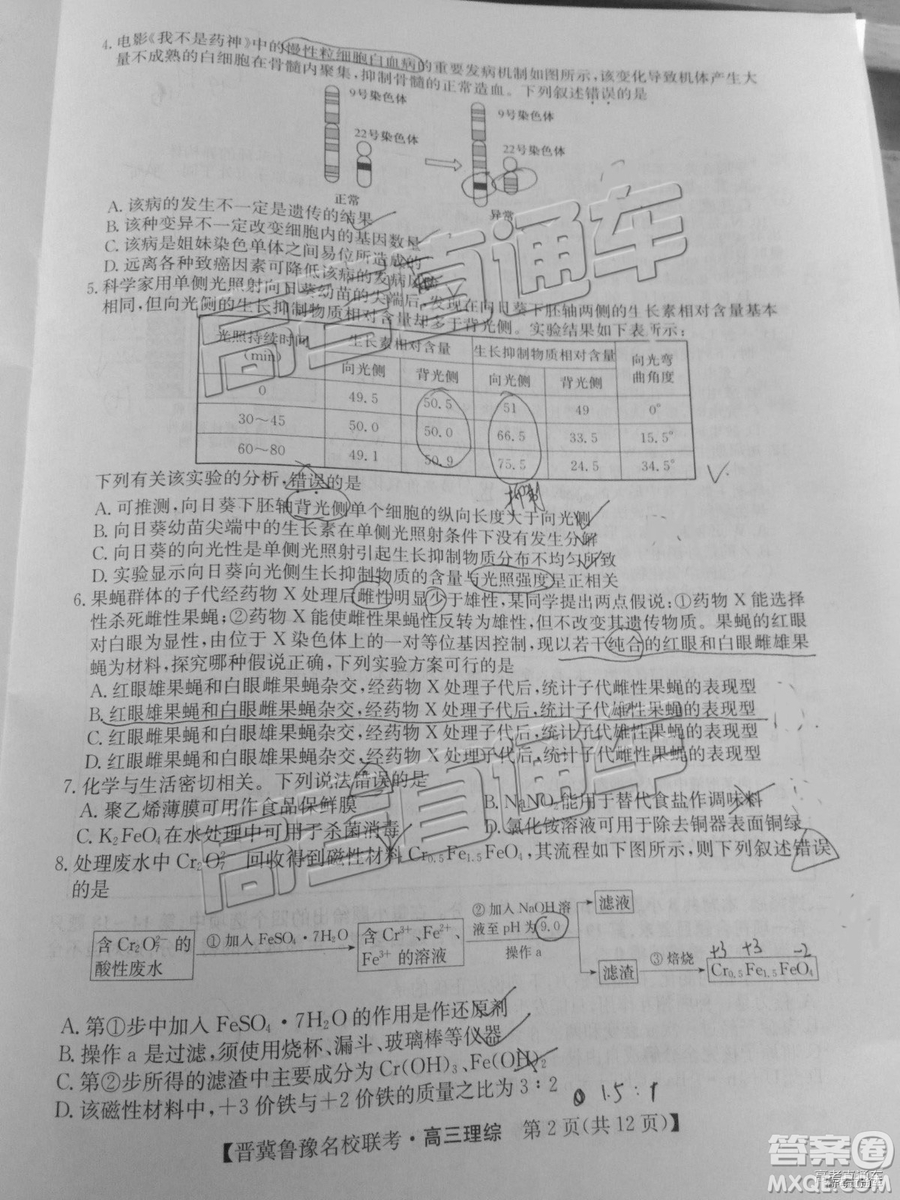 4. 电影《我不是药神》中的慢性粒细胞白血病的重要发病机制如图所示,该变化导致机体产生大
量不成熟的白细胞在骨髓内聚集,抑制骨髓的正常造血。下列叙述错误的是
9号染色体
22号染色体
正常
9号染色体
22号染色体
异常
A. 该病的发生不一定是遗传的结果
B. 该种变异不一定改变细胞内的基因数量
C. 该病是姐妹染色单体之间易位所造成的
D. 远离各种致癌因素可降低该病的发病
5. 科学家用单侧光照射向日葵幼苗的尖端后,发现在向日葵下胚轴两侧的生长素相对含量基本
相同,但向光侧的生长抑制物质相对含量却多于背光侧。实验结果如下表所示:
光照持续时间 (min) 生长素相对含量 生长抑制物质相对含量 向光弯曲角度
向光侧 背光侧 向光侧 背光侧
0 49.5 50.5 51 49 0°
30~45 50.0 50.0 66.5 33.5 15.5°
60~80 49.1 50.9 75.5 24.5 34.5°
抑制
下列有关该实验的分析,错误的是
A. 可推测,向日葵下胚轴背光侧单个细胞的纵向长度大于向光侧
B. 向日葵幼苗尖端中的生长素在单侧光照射条件下没有发生分解
C. 向日葵的向光性是单侧光照射引起生长抑制物质分布不均匀所致
D. 实验显示向日葵向光侧生长抑制物质的含量与光照强度呈正相关
6. 果蝇群体的子代经药物 X 处理后雌性明显少于雄性,某同学提出两点假说:①药物 X 能选择
性杀死雌性果蝇;②药物 X 能使雌性果蝇性反转为雄性,但不改变其遗传物质。果蝇的红眼
对白眼为显性,由位于 X 染色体上的一对等位基因控制,现以若干纯合的红眼和白眼雌雄果
蝇为材料,探究哪种假说正确,下列实验方案可行的是
A. 红眼雄果蝇和白眼雌果蝇杂交,经药物 X 处理子代后,统计子代雌性果蝇的表现型
B. 红眼雄果蝇和白眼雌果蝇杂交,经药物 X 处理子代后,统计子代雄性果蝇的表现型
C. 红眼雌果蝇和白眼雄果蝇杂交,经药物 X 处理子代后,统计子代雄性果蝇的表现型
D. 红眼雌果蝇和白眼雄果蝇杂交,经药物 X 处理子代后,统计子代雌性果蝇的表现型
7. 化学与生活密切相关。下列说法错误的是
A. 聚乙烯薄膜可用作食品保鲜膜 B. NaNO₂能用于替代食盐作调味料
C. K₂FeO₄在水处理中可用于杀菌消毒 D. 氯化铵溶液可用于除去铜器表面铜绿
8. 处理废水中 Cr₂O₇²⁻ 回收得到磁性材料 Cr₀.₅Fe₁.₅FeO₄,其流程如下图所示,则下列叙述错误
的是
含 Cr₂O₇²⁻的酸性废水 ①加入 FeSO₄·7H₂O 含 Cr³⁺、Fe²⁺、Fe³⁺的溶液 ②加入 NaOH 溶液至 pH 为 9.0 操作 a 滤液
滤渣 ③焙烧 Cr₀.₅Fe₁.₅FeO₄
+3 +3 -2
A. 第①步中加入 FeSO₄·7H₂O 的作用是作还原剂
B. 操作 a 是过滤,须使用烧杯、漏斗、玻璃棒等仪器
C. 第②步所得的滤渣中主要成分为 Cr(OH)₃、Fe(OH)₂
D. 该磁性材料中,+3 价铁与+2 价铁的质量之比为 3∶2
1.5:1
【晋冀鲁豫名校联考·高三理综 第 2 页(共 12 页)】
高三直通车
高三直通车
答案圈
MXQE.COM